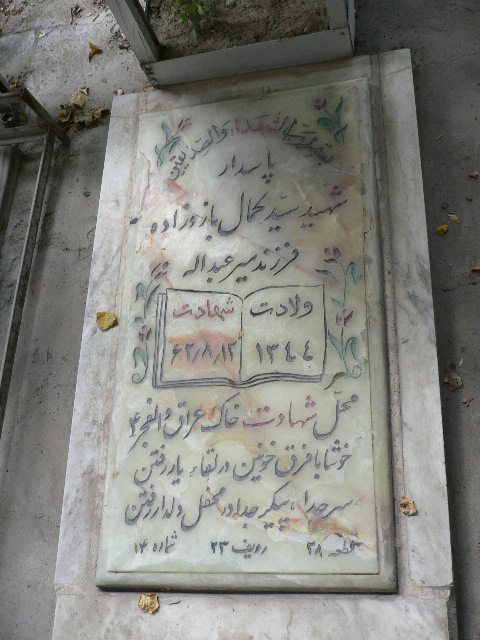 بسم رب الشهداء والصدیقین
پاسدار
شهید سید کمال بازوزاده
فرزند میرعبداله
ولادت شهادت
۱۳۴۴ ۶۲٫۸٫۱۲
محل شهادت خاک عراق والفجر ۴
خوشا با فرق خونین در لقاء یار رفتن
سر جدا، پیکر جدا در محفل دلدار رفتن
قطعه ۲۸ ردیف ۲۳ شماره ۱۴